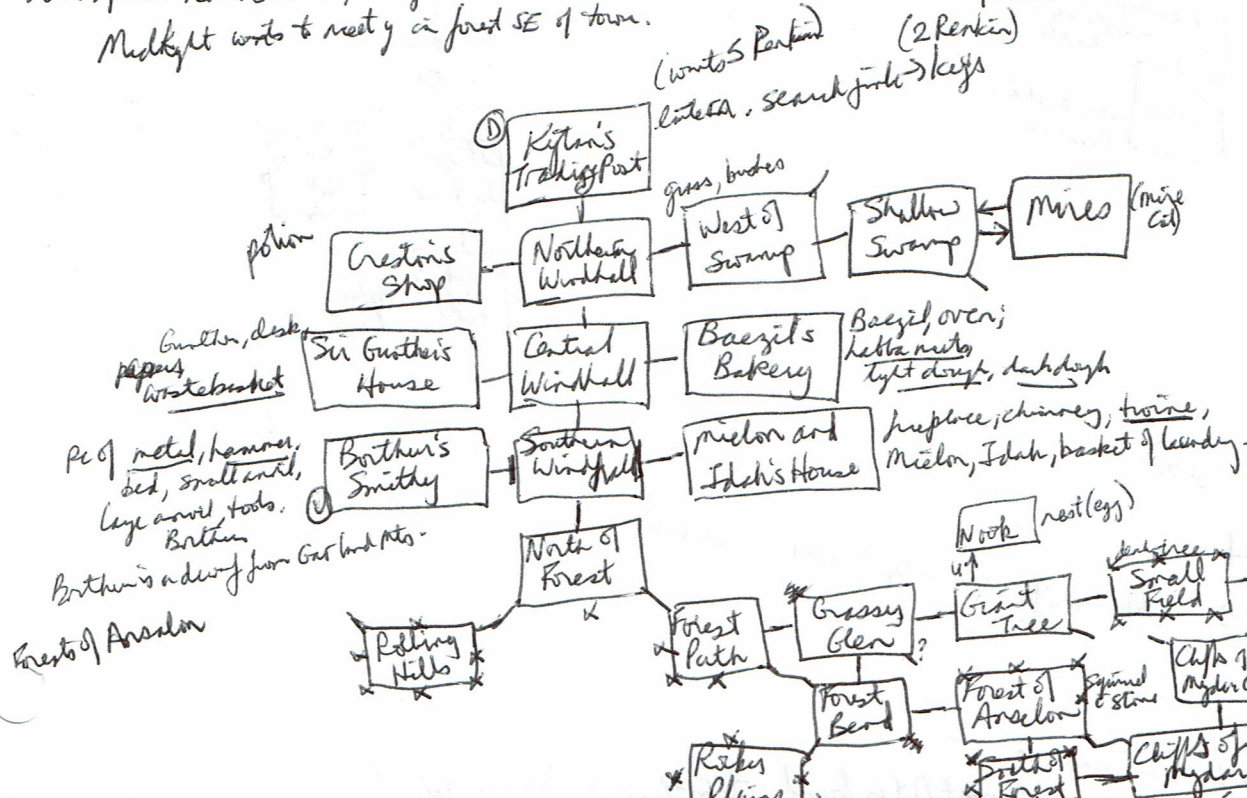 wants to meet y in forest SE of town.
(wants 5 Renkin)
(2 Renkin)
search junk → keys
D
Kylan's
Trading Post
grass, bushes
potion
Creston's
Shop
Northern
Windhall
West of
Swamp
Shallow
Swamp
Mires
(mire
Cat)
desk,
papers
wastebasket
Sir Gunther's
House
Central
Windhall
Baezil's
Bakery
Baezil, oven;
habba nuts,
light dough, dark dough
Pc of metal, hammer,
bed, small anvil,
large anvil, tools.
Borthur
Borthur's
Smithy
U
Southern
Windhall
Mielon and
Idah's House
fireplace, chimney, twine,
Mielon, Idah, basket of laundry.
Borthur is a dwarf from Garland Mts.
North of
Forest
Nook
nest (egg)
up
Forests of Anselon
Rolling
Hills
Forest
Path
Grassy
Glen
?
Giant
Tree
tree
Small
Field
Forest
Bend
Forest of
Anselon
Squirrel
& stone
Cliffs of
Rocky
South of
Forest
Cliffs of
Mydar